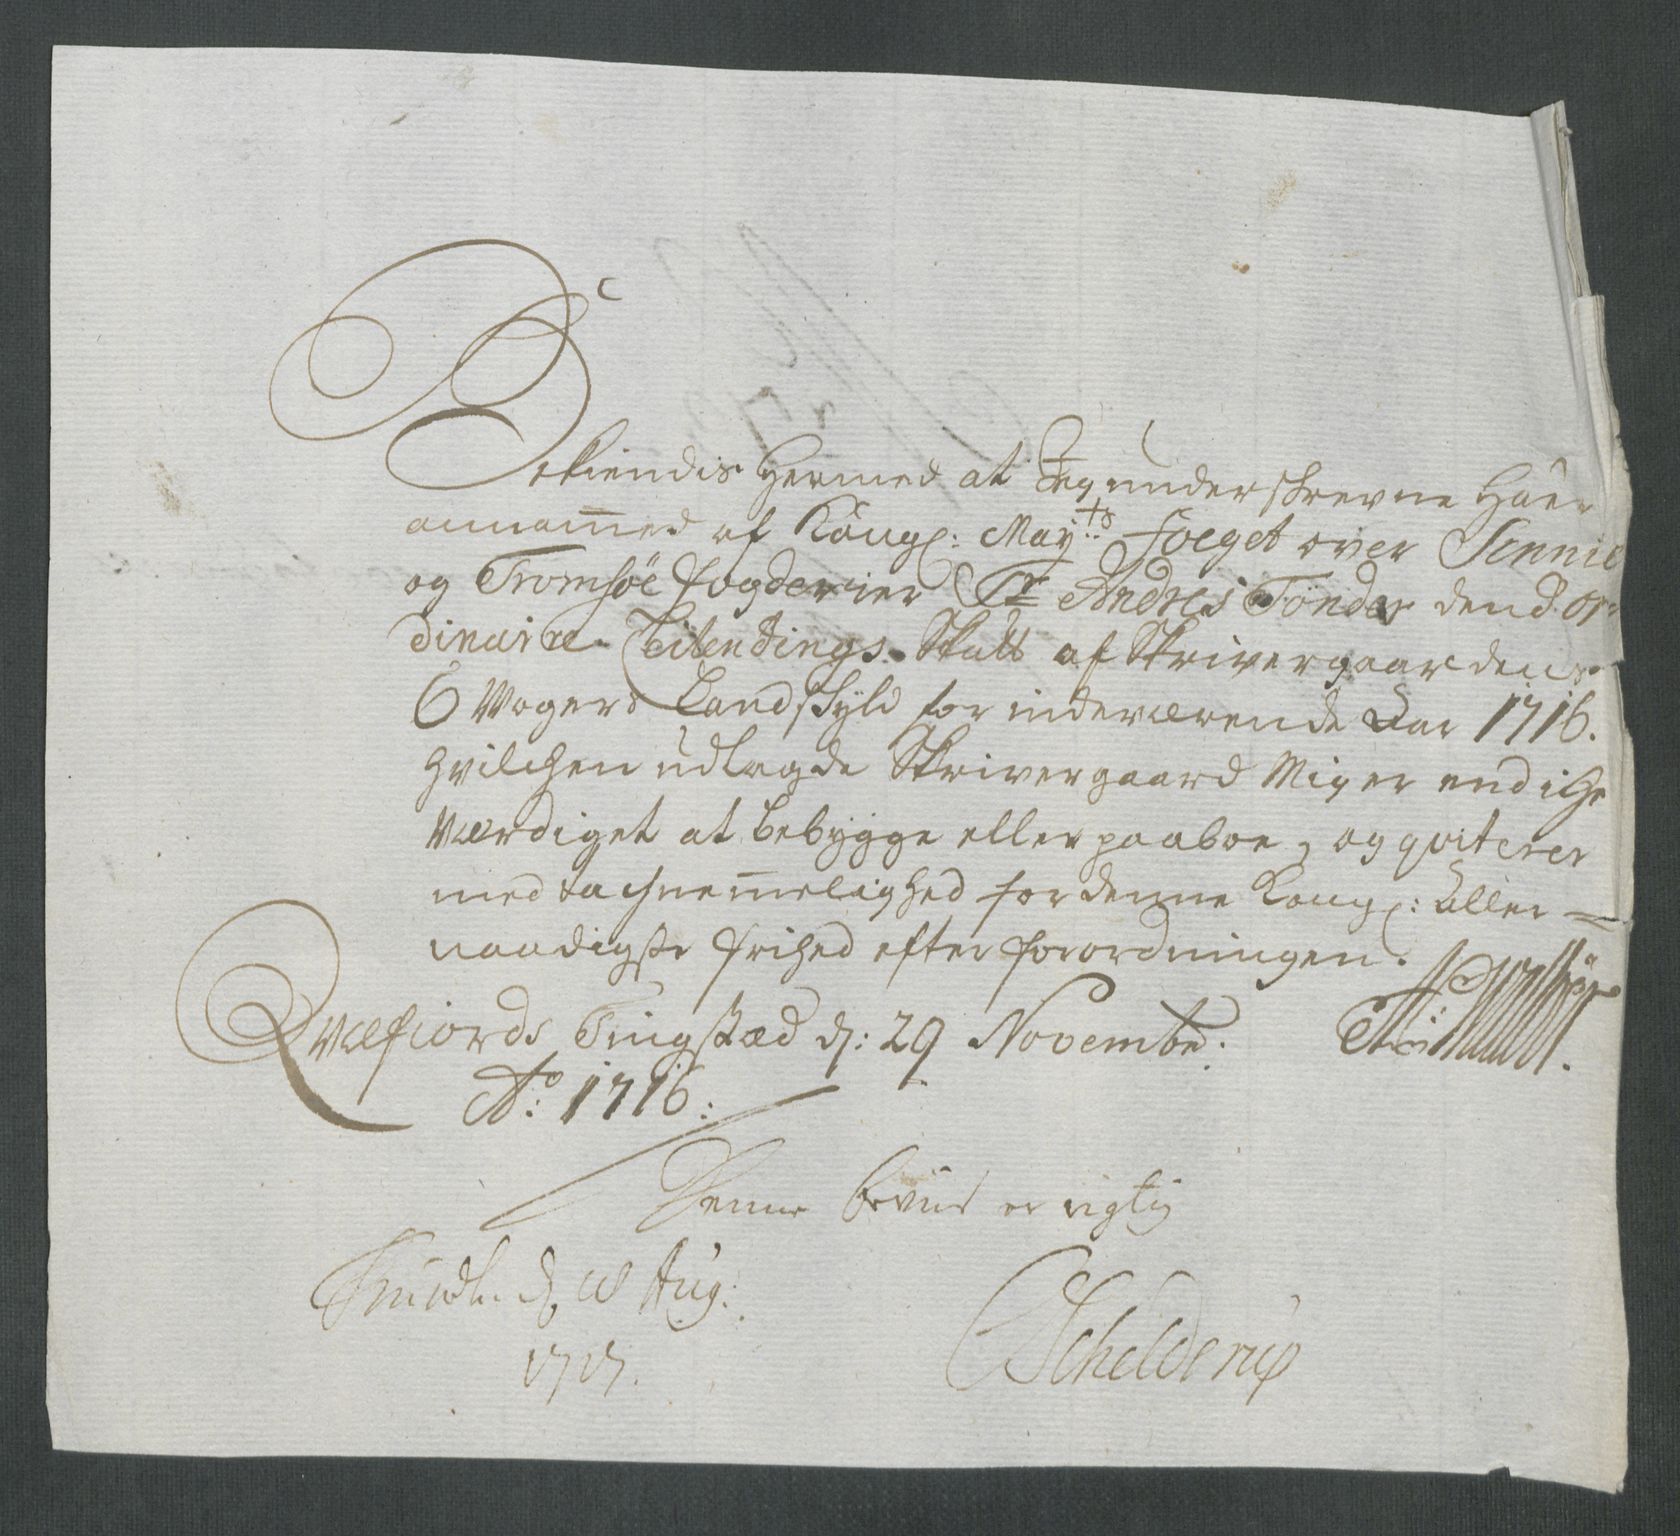 Bekiendis Hermed at Jeg underschrevne Haver
annammed af Kongl: May:ts foeget over Sennie
og Tromsöe fogderier Sr Andres Tønder den d: or-
dinaire Leilendings Skatt af Skrivergaardens
6 Wogers Landskyld for indeværende Aar 1716.
hvilchen udlagde Skrivergaard Mig er end iche
værdiget at bebygge eller paaboe, og qviterer
med tachnemmelighed for denne Kongl: Aller=
naadigste frihed efter forordningen.
Qvæfiords Tingstæd d: 29 Novembr:
Ao: 1716:
Denne beviis er rigtig
d 18 Aug:
1717.
Schielderup